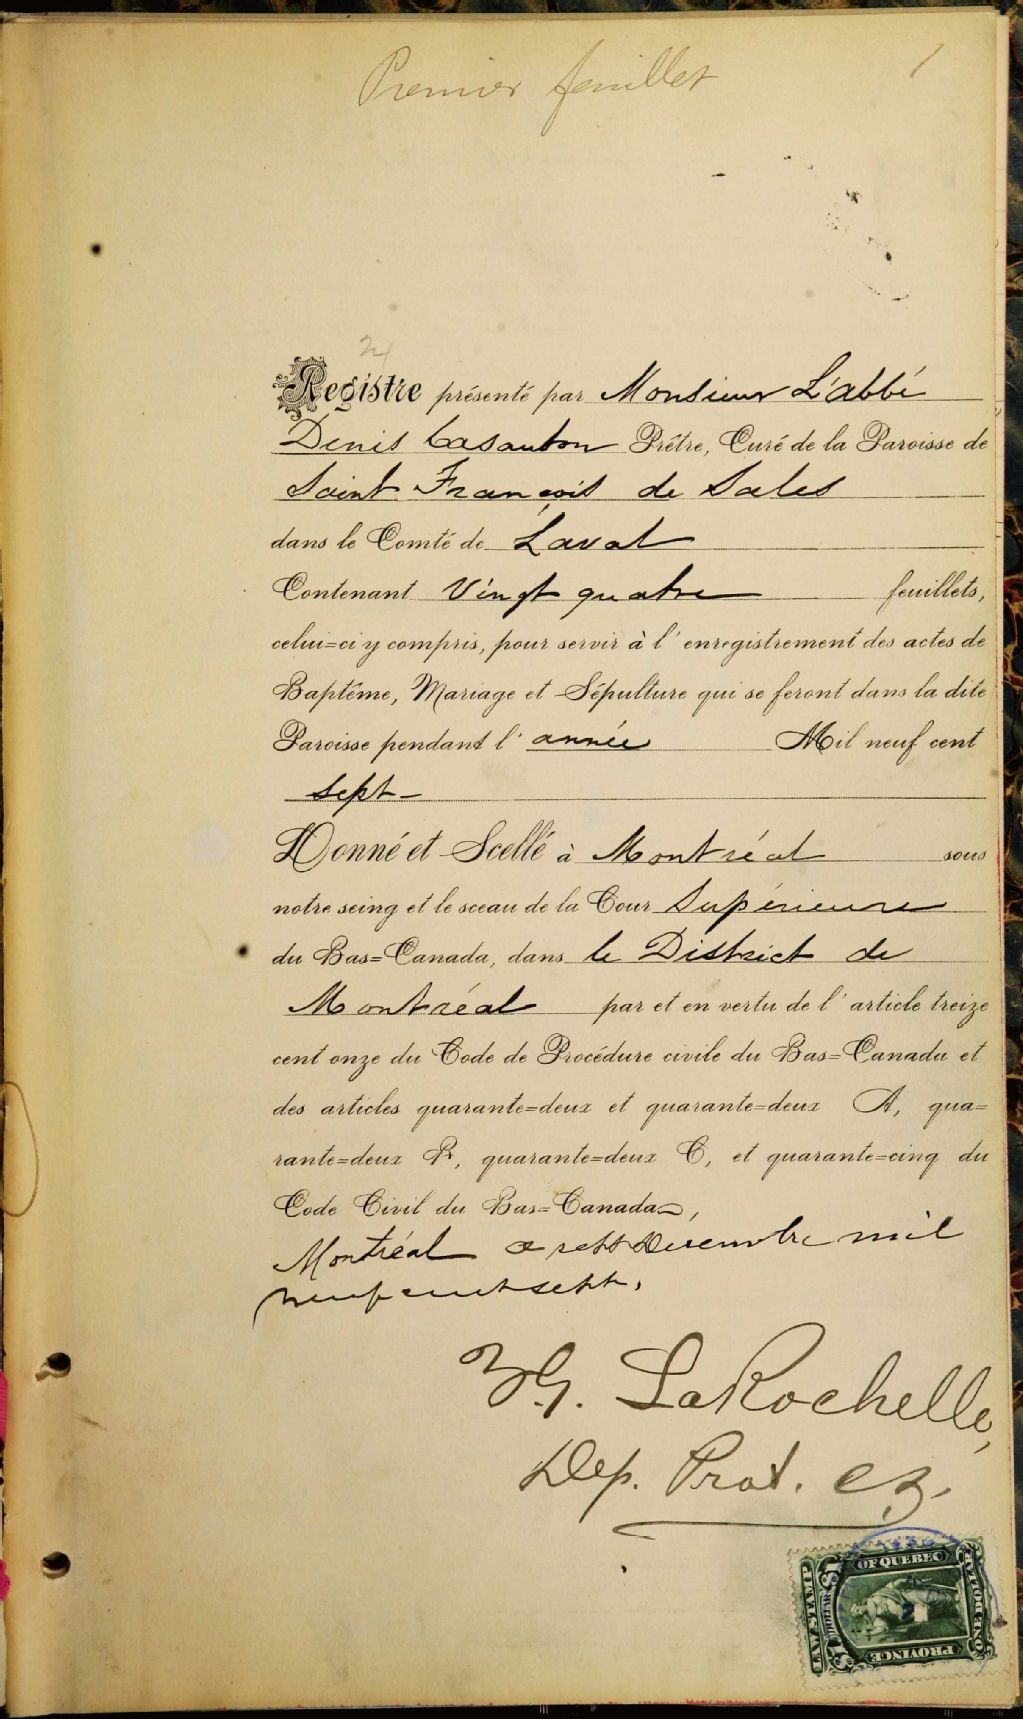 Premier feuillet 1
24
Registre présenté par Monsieur L'abbé
Denis Casaubon Prêtre, Curé de la Paroisse de
Saint François de Sales
dans le Comté de Laval
Contenant Vingt quatre feuillets,
celui=ci y compris, pour servir à l'enregistrement des actes de
Baptême, Mariage et Sépulture qui se feront dans la dite
Paroisse pendant l'année Mil neuf cent
Sept -
Donné et Scellé à Montréal sous
notre seing et le sceau de la Cour Supérieure
du Bas=Canada, dans le District de
Montréal par et en vertu de l'article treize
cent onze du Code de Procédure civile du Bas=Canada et
des articles quarante=deux et quarante=deux A, qua=
rante=deux B, quarante=deux C, et quarante=cinq du
Code Civil du Bas=Canada,
Montréal ce sept Decembre mil
neuf cent sept.
LaRochelle,
Dep. Prot.
LAW STAMP
$1 DOLLAR $1
OF QUEBEC
ONE DOLLAR
PROVINCE